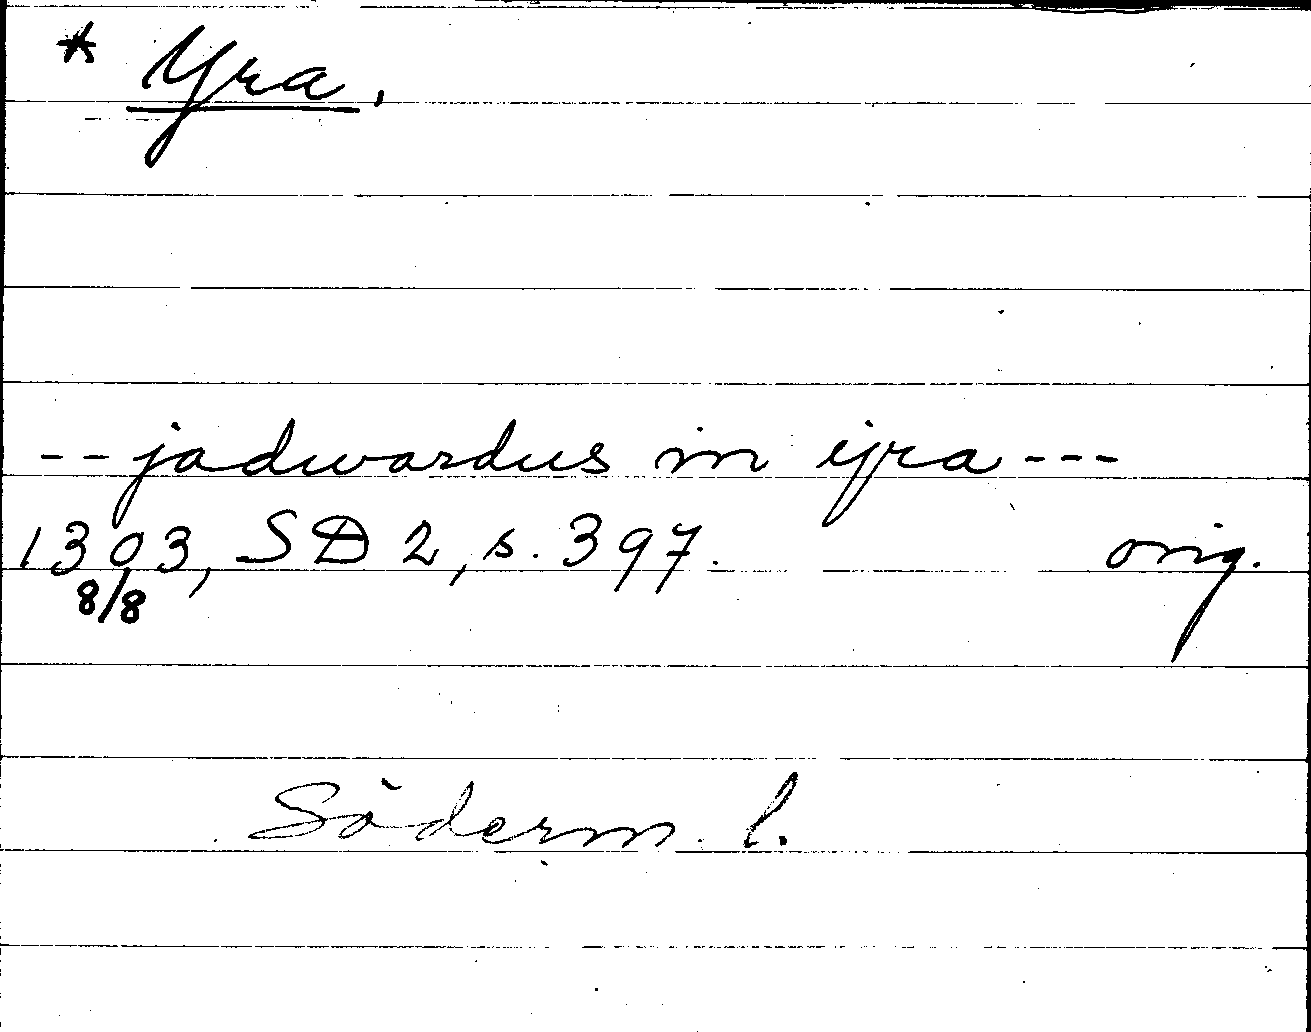 * Yra.
-- jadwardus in ÿra ---
1303, SD 2, s. 397. orig.
8/8
Söderm. l.